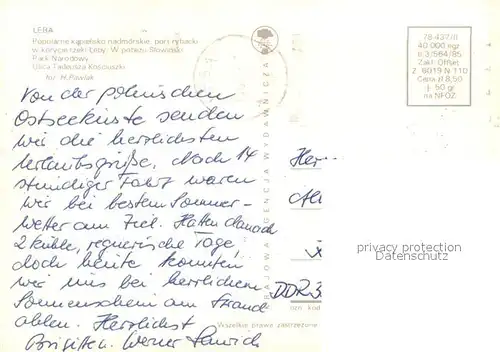 ŁEBA
Popularne kąpielisko nadmorskie, port rybacki
w korycie rzeki Łeby. W pobliżu Słowiński
Park Narodowy
Ulica Tadeusza Kościuszki
fot. H. Pawlak
Von der polnischen
Ostseeküste senden
wir die herrlichsten
Urlaubsgrüße. Nach 14
stündiger Fahrt waren
wir bei bestem Sommer-
wetter am Ziel. Hatten danach
2 kühle, regnerische Tage,
doch heute konnten
wir uns bei herrlichem
Sonnenschein am Strand
aalen. Herzlichst
Brigitte u. Werner
KRAJOWA AGENCJA WYDAWNICZA
Wszelkie prawa zastrzeżone
78-437/II
40 000 egz.
Zakł. Offset.
Cena zł 8,50
+ 50 gr
na NFOZ
Herr
DDR
privacy protection
Datenschutz